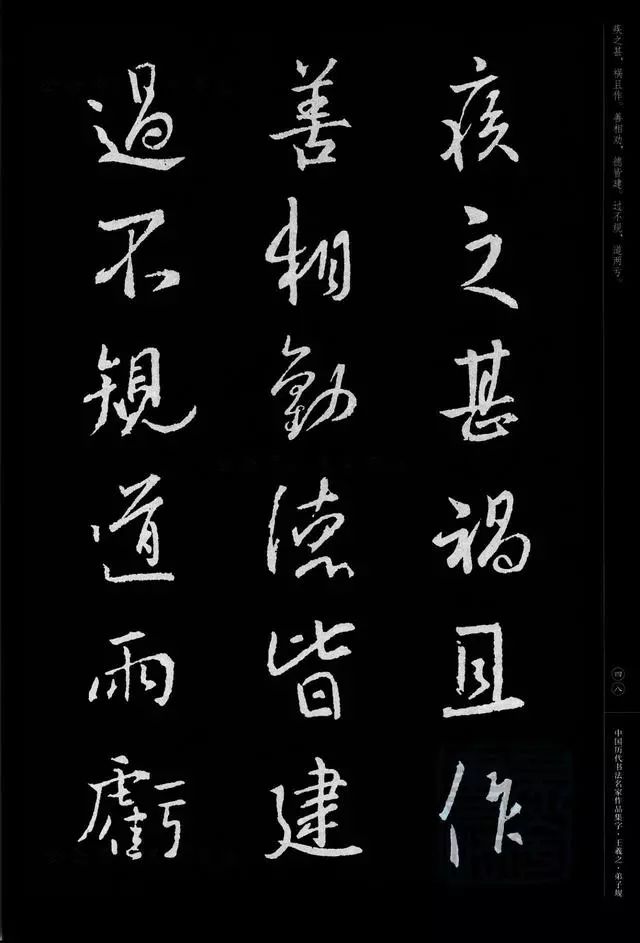 疾之甚禍且作
善相勸德皆建
過不規道兩虧
疾之甚,祸且作。善相劝,德皆建。过不规,道两亏。
四八
中国历代书法名家作品集字·王羲之·弟子规